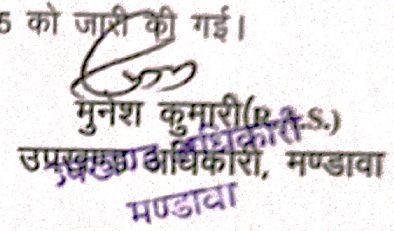 5 को जारी की गई।
मुनेश कुमारी(R.A.S.)
उपखण्ड अधिकारी, मण्डावा
उपखण्ड अधिकारी
मण्डावा